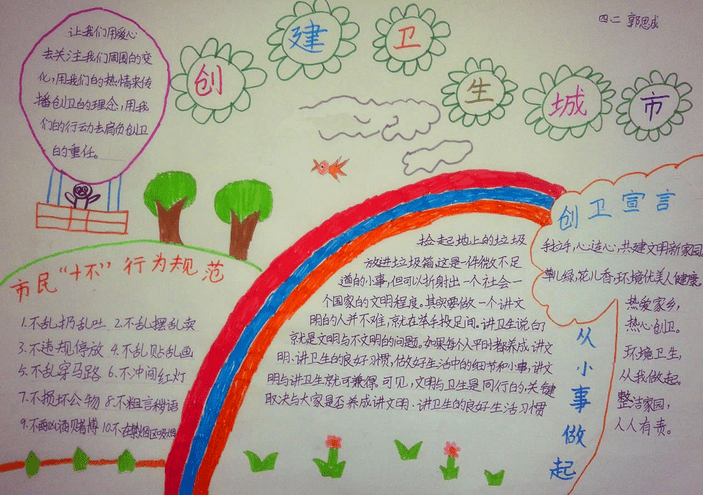 四二 郭思成
创建卫生城市
让我们用爱心
去关注我们周围的变
化,用我们的热情来传
播创卫的理念,用我
们的行动去肩负创卫
的重任。
市民“十不”行为规范
1.不乱扔乱吐 2.不乱摆乱卖
3.不违规停放 4.不乱贴乱画
5.不乱穿马路 6.不冲闯红灯
7.不损坏公物 8.不粗言秽语
9.不酗酒赌博 10.不在禁烟区吸烟
捡起地上的垃圾
放进垃圾箱这是一件微不足
道的小事,但可以折射出一个社会一
个国家的文明程度。其实要做一个讲文
明的人并不难,就在举手投足间。讲卫生说白了
就是文明与不文明的问题。如果每个人平时都养成讲文
明、讲卫生的良好习惯,做好生活中的细节和小事,讲文
明与讲卫生就可兼得。可见,文明与卫生是同行的,关键
取决与大家是否养成讲文明、讲卫生的良好生活习惯
从小事做起
创卫宣言
手拉手,心连心,共建文明新家园
草儿绿,花儿香,环境优美人健康
热爱家乡,
热心创卫。
环境卫生,
从我做起。
整洁家园,
人人有责。